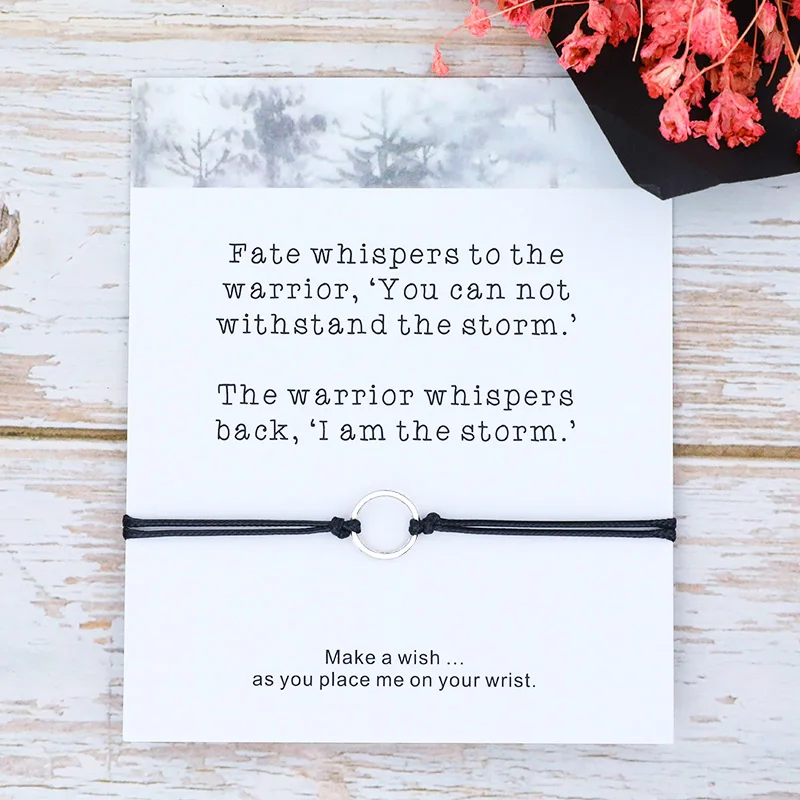 Fate whispers to the
warrior, ‘You can not
withstand the storm.’
The warrior whispers
back, ‘I am the storm.’
Make a wish ...
as you place me on your wrist.